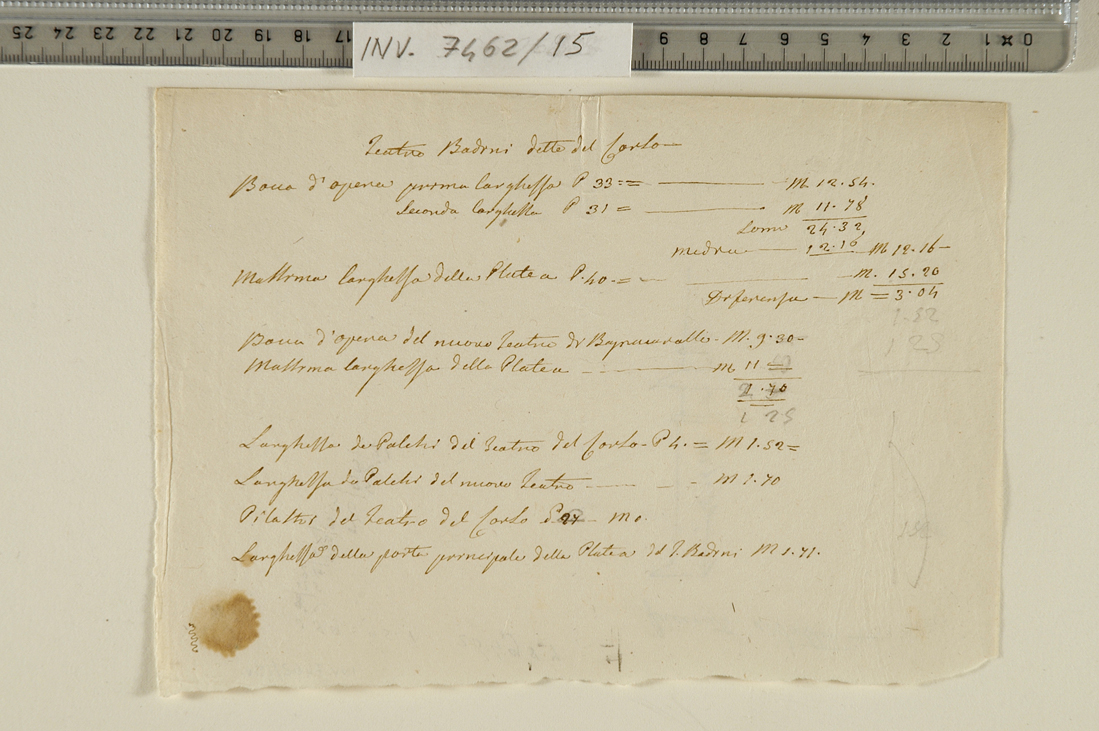 INV. 7462/15
Teatro Badini detto del Corso
Bocca d'opera prima larghessa P 33 == M 12.54.
Seconda larghessa P 31 = M 11.78
Som 24.32
media 12.16 M 12.16
Massima larghessa della Platea P. 40 = M. 15.20
Diferensa M = 3.04
1.52
1 23
Bocca d'opera del nuovo Teatro di Bagnacavallo M. 9.30
Massima larghessa della Platea M 11
1.70
1 25
Larghessa de Palchi del Teatro del Corso P 4. = M 1.52 =
Larghessa de Palchi del nuovo Teatro M 1.70
Pilastri del Teatro del Corso M 0.
Larghessa della porta principale della Platea del T. Badini M 1.71.